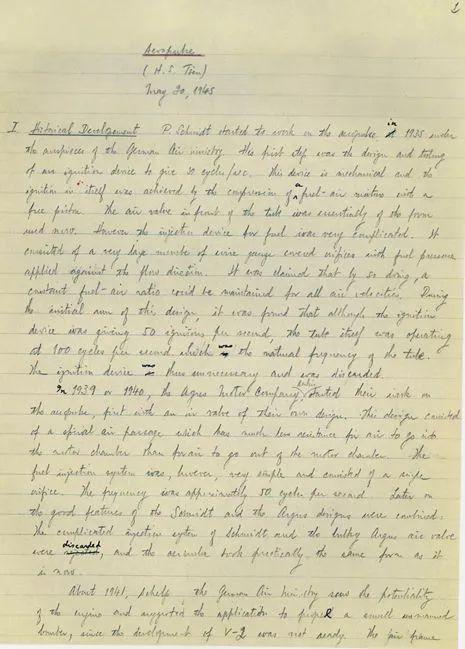 1
Aeropulse
(H. S. Tsien)
May 20, 1945
I. Historical Development P. Schmidt started to work on the aeropulse in 1935 under
the auspices of the German Air ministry. His first step was the design and testing
of an ignition device to give 50 cycles/sec. This device is mechanical and the
ignition in itself was achieved by the compression of a fuel-air mixture with a
free piston. The air valve in front of the tube was essentially of the form
used now. However the injection device for fuel was very complicated. It
consisted of a very large number of wire gauge covered orifices with fuel pressure
applied against the flow direction. It was claimed that by so doing, a
constant fuel-air ratio could be maintained for all air velocities. During
the initial run of this design, it was found that although the ignition
device was giving 50 ignitions per second, the tube itself was operating
at 100 cycles per second which was the natural frequency of the tube.
The ignition device was thus unnecessary and was discarded.
In 1939 or 1940, the Argus Motor Company started their work on
the aeropulse, first with an air valve of their own design. This design consisted
of a spiral air passage which has much less resistance for air to go into
the motor chamber than for air to go out of the motor chamber. The
fuel injection system was, however, very simple and consisted of a single
orifice. The frequency was approximately 50 cycles per second. Later on
the good features of the Schmidt and the Argus designs were combined.
The complicated injection system of Schmidt and the bulky Argus air valve
were discarded, and the aeropulse took practically the same form as it
is now.
About 1941, the German Air Ministry saw the potentiality
of the engine and suggested the application to propel a small unmanned
bomber, since the development of V-2 was not ready. The air frame